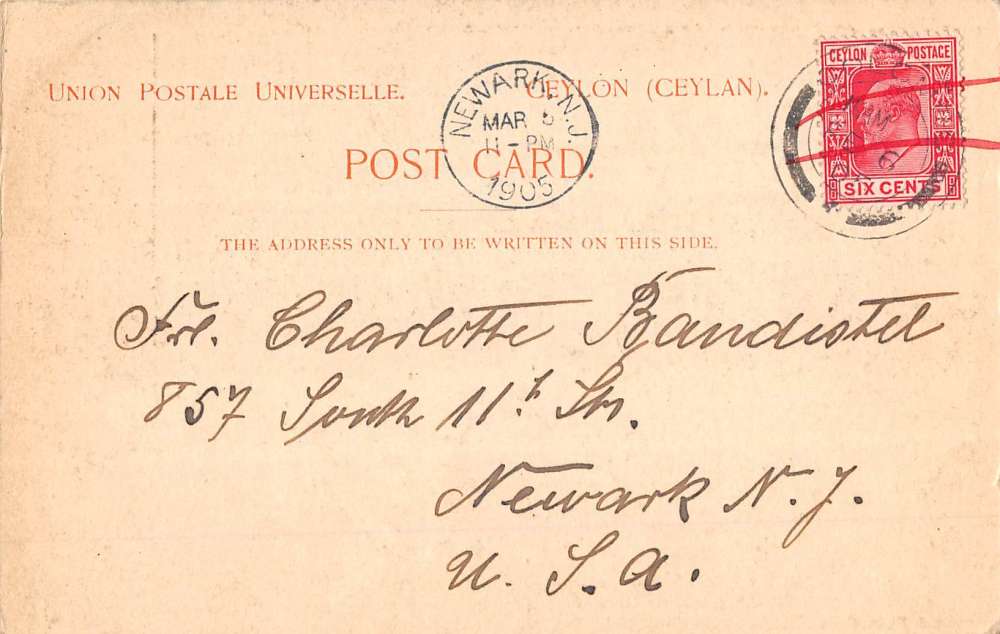 UNION POSTALE UNIVERSELLE. CEYLON (CEYLAN).
POST CARD.
THE ADDRESS ONLY TO BE WRITTEN ON THIS SIDE.
CEYLON POSTAGE
SIX CENTS
NEWARK, N.J.
MAR 5
11 - PM
1905
Frl. Charlotte Bandistel
857 South 11t Str.
Newark N. J.
U. S. A.